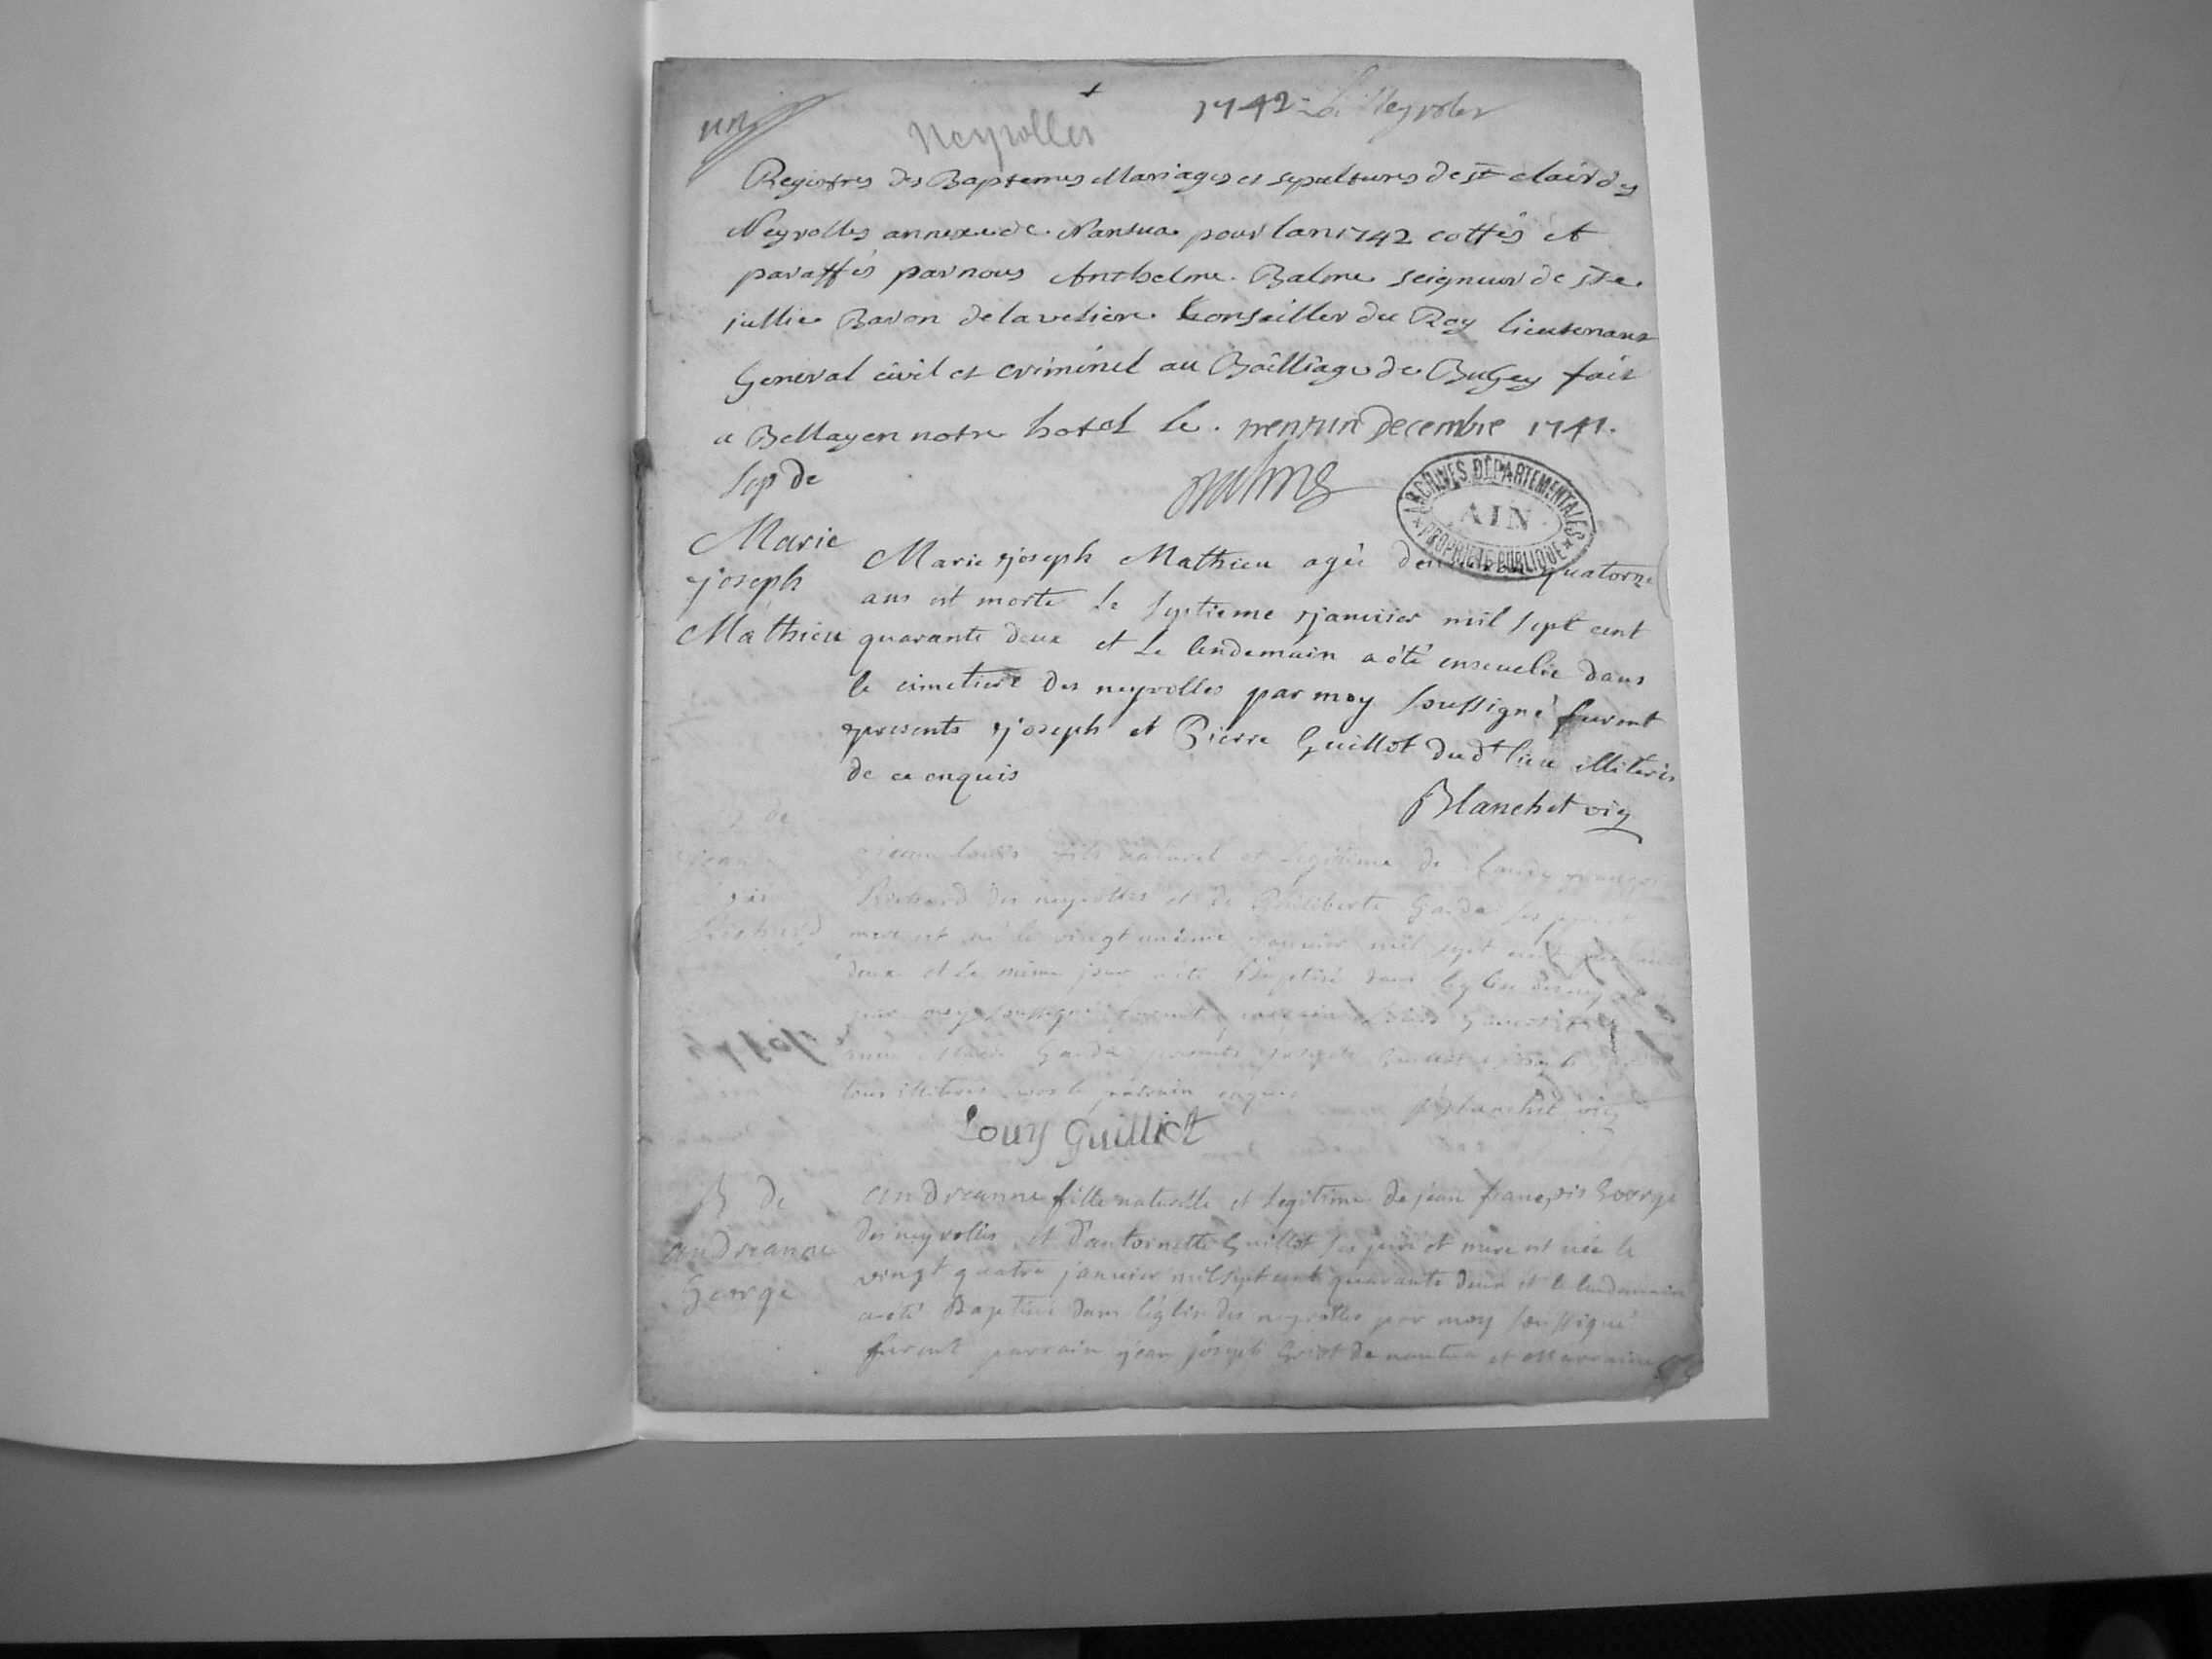 un
Neyrolles
1742 Neyroles
Registres des Baptemes Mariages et sepultures de st clair des
Neyrolles annexe de Nantua pour lan 1742 cottés et
paraffés par nous Anthelme Balme seigneur de ste
jullie Baron de la velière Conseiller du Roy lieutenant
General civil et criminel au Bailliage de Bugey fait
a Bellay en notre hotel le trent un Decembre 1741.
balme
ARCHIVES DÉPARTEMENTALES
AIN
PROPRIÉTÉ PUBLIQUE
Sep de
Marie
joseph
Mathieu
Marie joseph Mathieu agée quatorze
ans est morte le septieme janvier mil sept cent
quarante deux et le lendemain a été ensevelie dans
le cimetiere des neyrolles par moy soussigné furent
presents joseph et Pierre Guillot dudt lieu illiterés
de ce enquis
Blanchet vic
de
jean
Richard
jean louis fils naturel et legitime de Claude françois
Richard des neyrolles et de Philiberte Garda ses pere et
mere est né le vingt unieme janvier mil sept cent quarante
deux et le même jour a été Baptisé dans leglise des neyrolles
par moy soussigné furent parrain
Garda presents joseph Guillot
tous illiterés le parrain enquis
Blanchet vic
Louy Guilliot
B de
andreanne
George
andreanne fille naturelle et legitime de jean françois George
des neyrolles et d'antoinette Guillot ses pere et mere est née le
vingt quatre janvier mil sept cent quarante deux et le lendemain
a été Baptisée dans l'église des neyrolles par moy soussigné
furent parrain jean joseph de nantua et Marraine